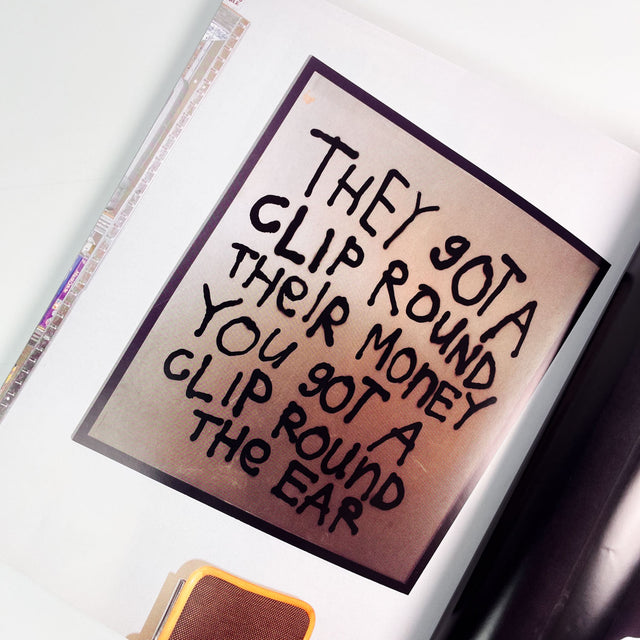 THEY gOT A
CLIP ROUND
THeIR MONEY
YOU gOT A
CLIP ROUND
THe EAR